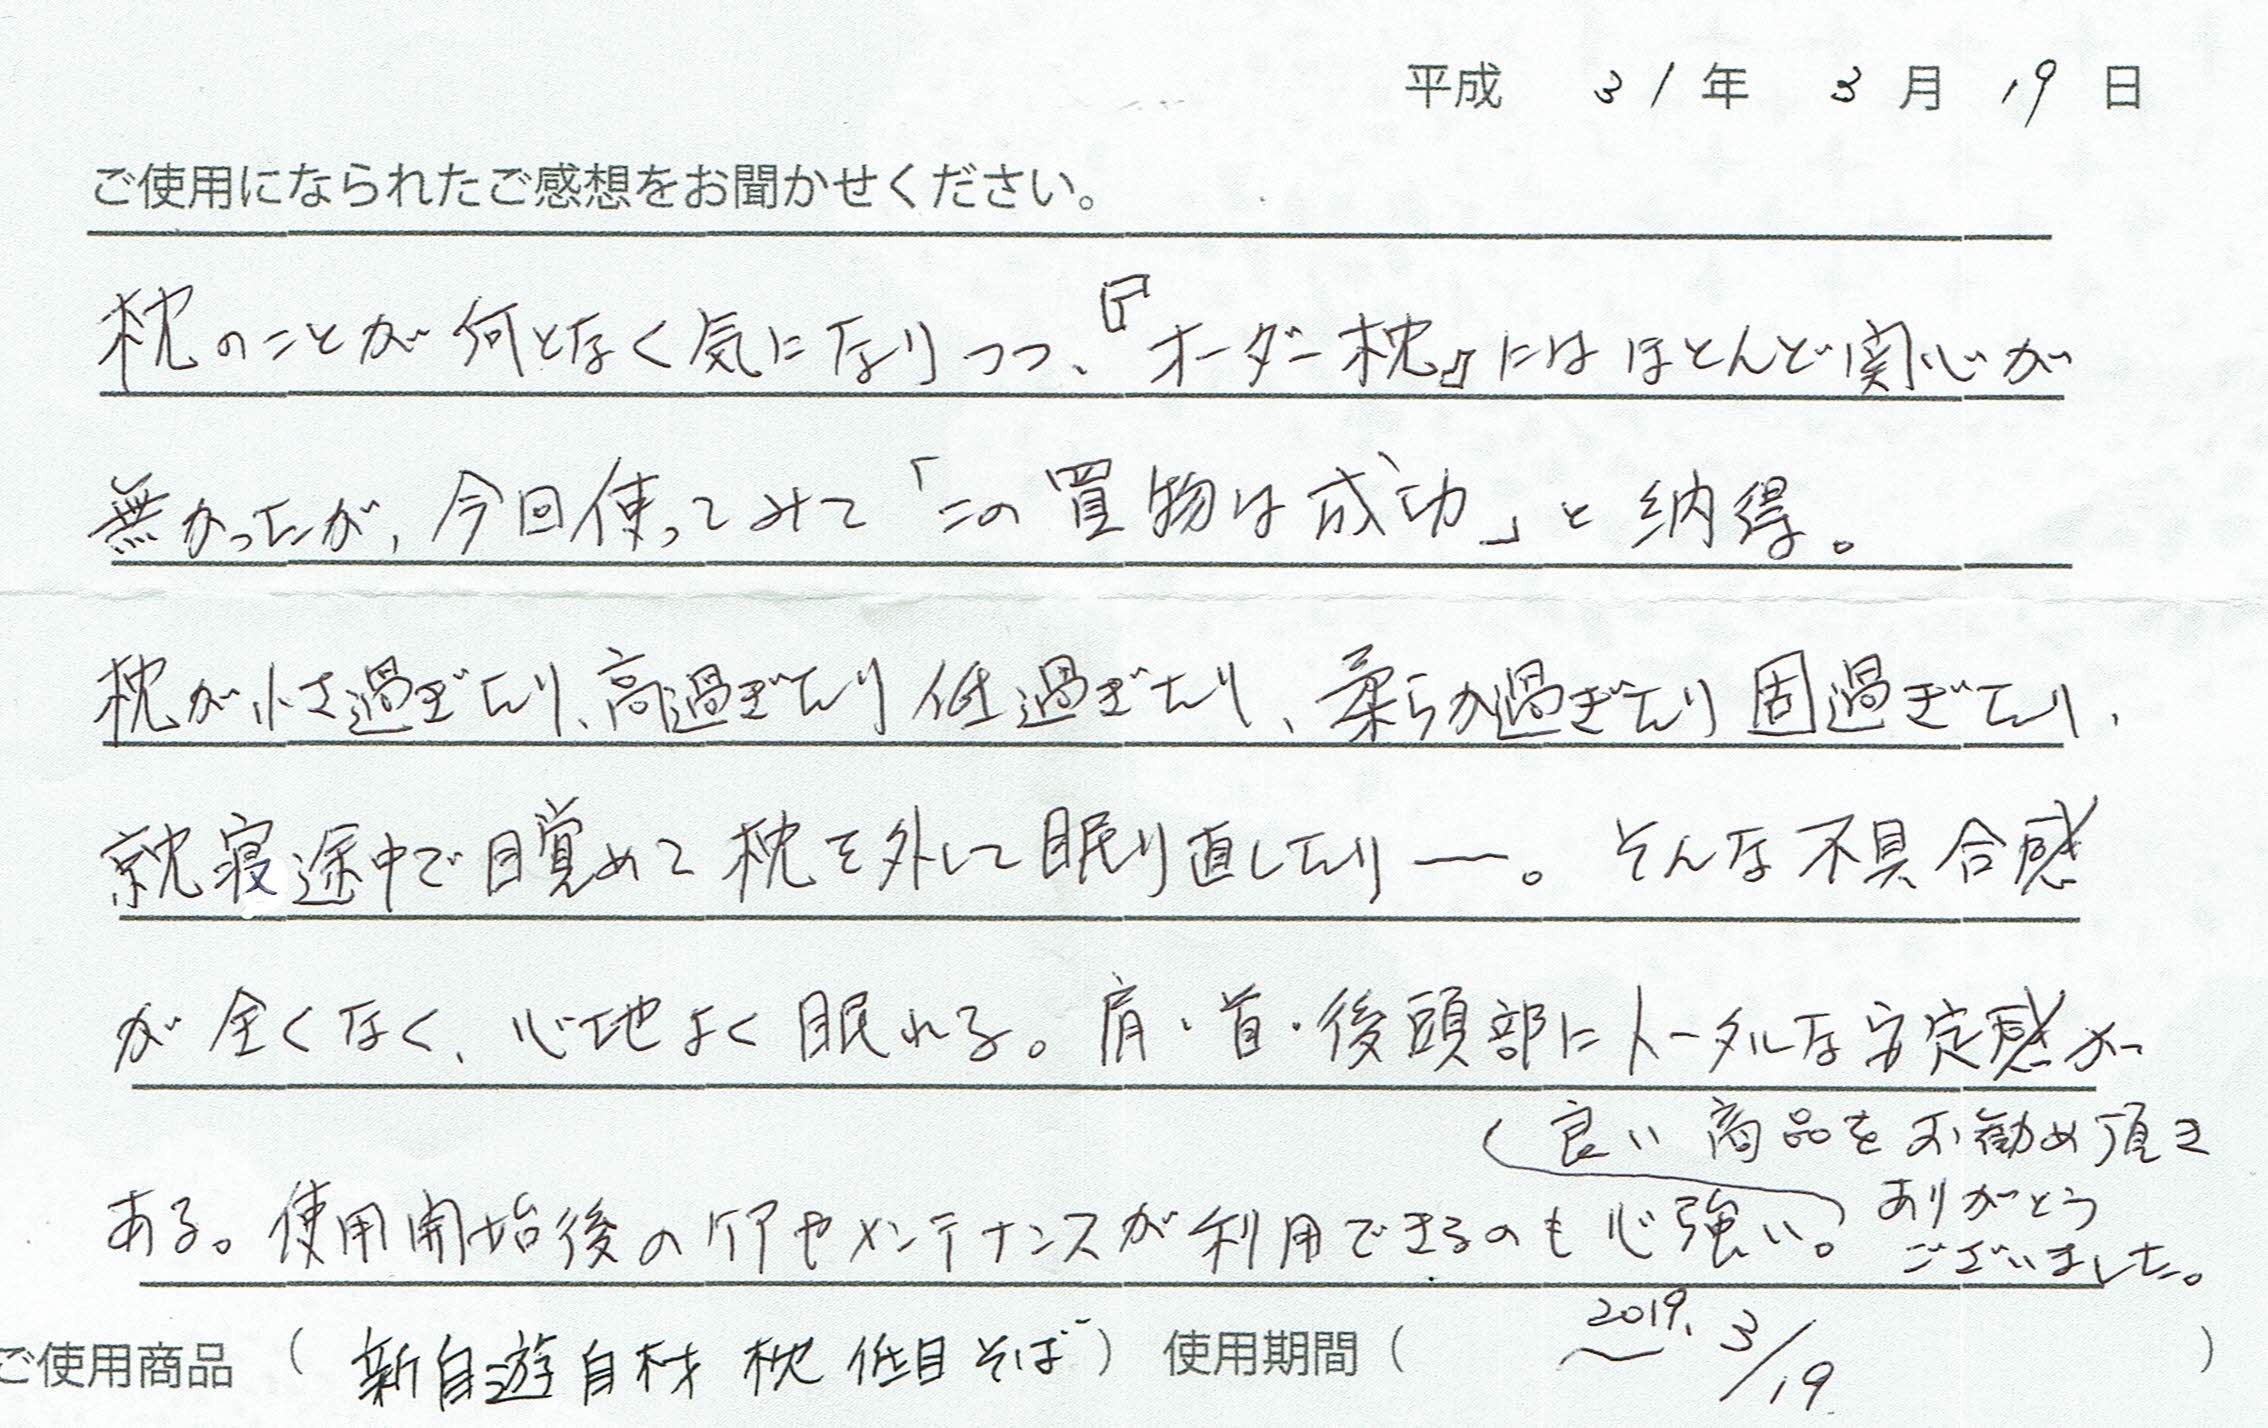 平成 31年 3月 19日
ご使用になられたご感想をお聞かせください。
枕のことが何となく気になりつつ、『オーダー枕』にはほとんど関心が
無かったが、今回使ってみて「この買物は成功」と納得。
枕が小さ過ぎたり、高過ぎたり低過ぎたり、柔らか過ぎたり固過ぎたり、
就寝途中で目覚めて枕を外して眠り直したり―。そんな不具合感
が全くなく、心地よく眠れる。肩・首・後頭部にトータルな安定感が
ある。使用開始後のケアやメンテナンスが利用できるのも心強い。
(良い商品をお勧め頂き
ありがとう
ございました。
ご使用商品 ( 新自遊自材 枕 低目 そば ) 使用期間 ( 〜2019. 3/19 )